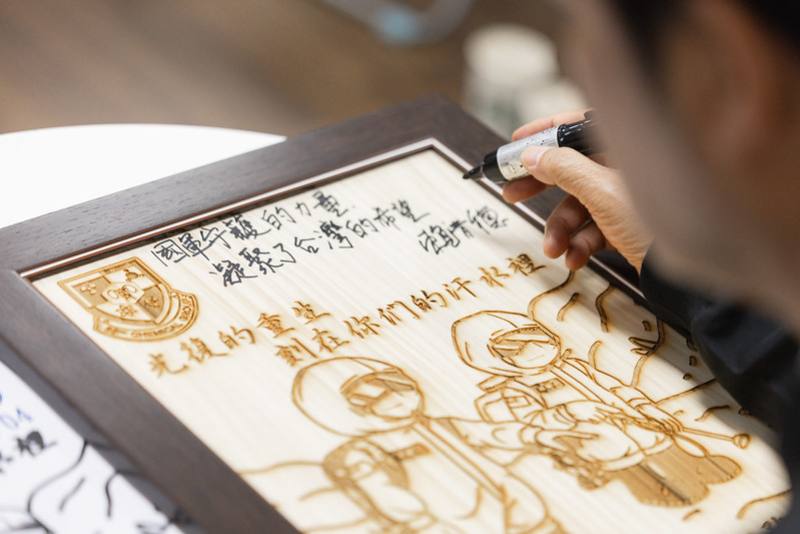 國軍守護的力量
凝聚了台灣的希望
光復的重生
刻在你们的汗水裡
04
水裡